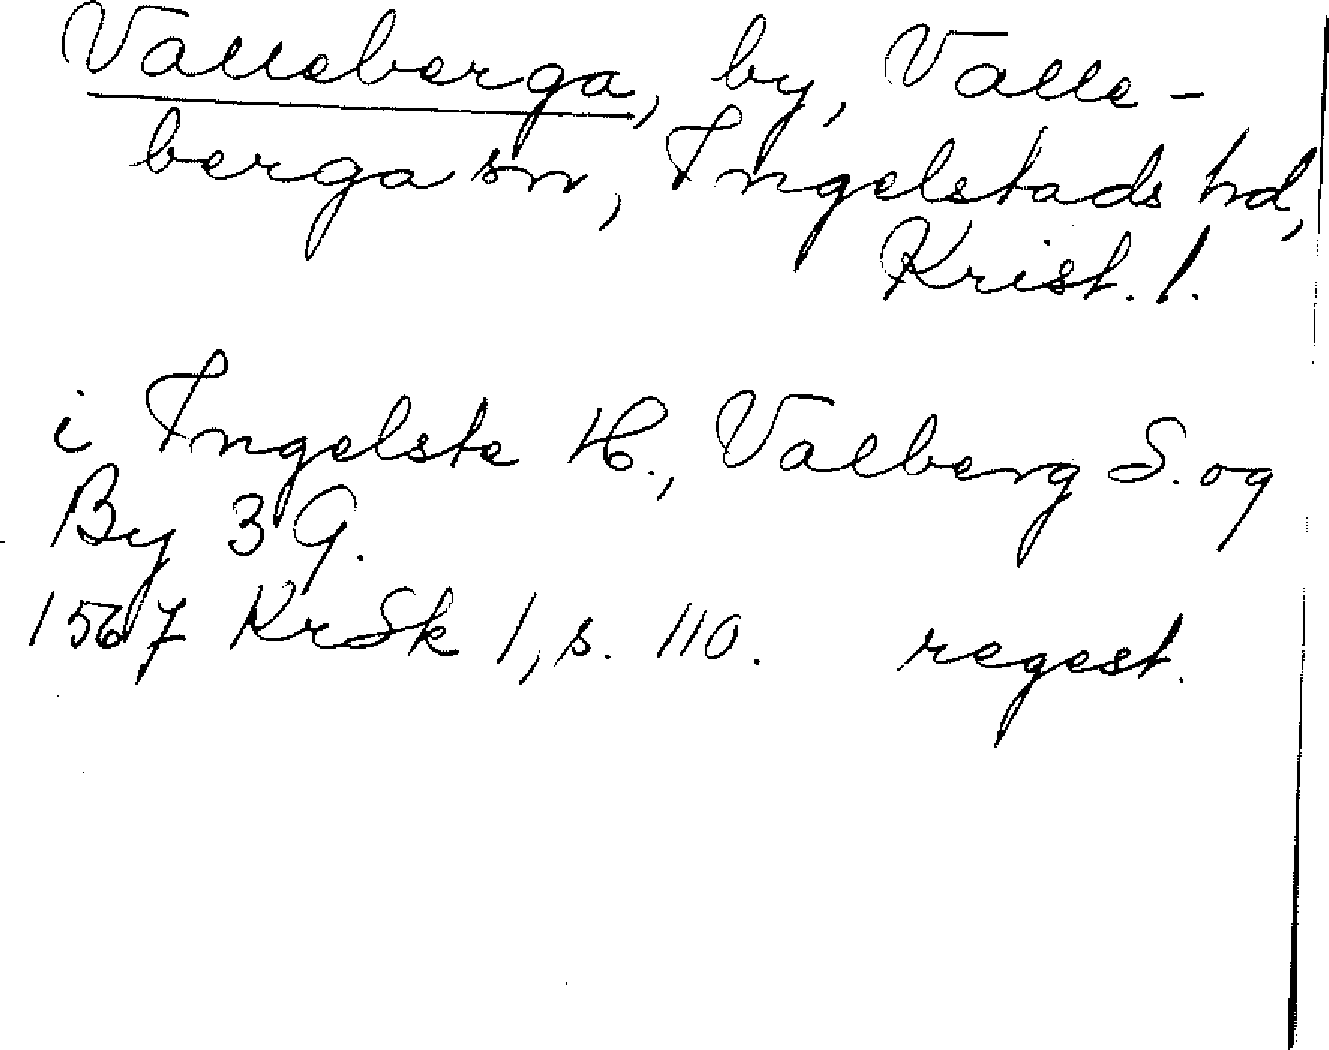 Valleberga, by, Valle-
berga sn, Ingelstads hd,
Krist. l.
i Ingelste H., Valberg S. og
By 3 G.
1567 KrSk 1, s. 110. regest.